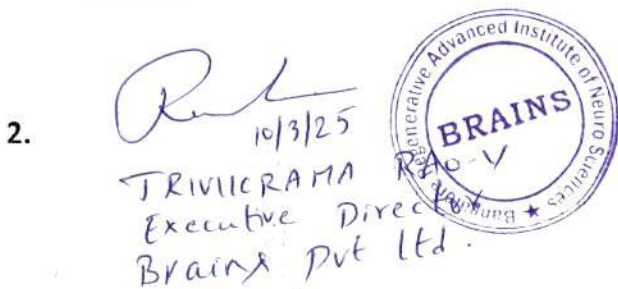 2.
10/3/25
TRIVIICRAMA RAO-V
Executive Director
Brains Pvt Ltd.
Regenerative Advanced Institute of Neuro Sciences
BRAINS
Bangalore ★